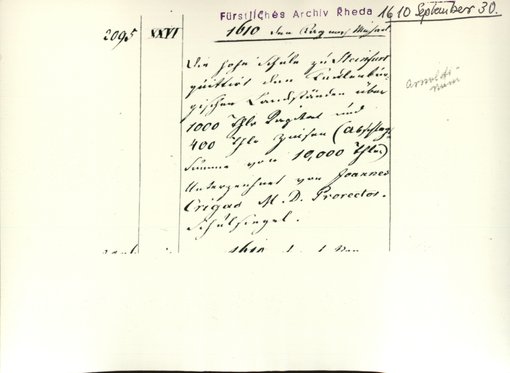 Fürstliches Archiv Rheda 1610 September 30.
2095 XXVI 1610 den Tag nach Michael
Die hohe Schule zu Steinfurt
quittirt den Tecklenbur
gischen Landständen über
1000 Thlr Kapital und
400 Thlr Zinsen (Abschlag
Summe von 10,000 Thlr)
Unterzeichnet von Joannes
M. D. Prorector.
Schulsiegel.
1610